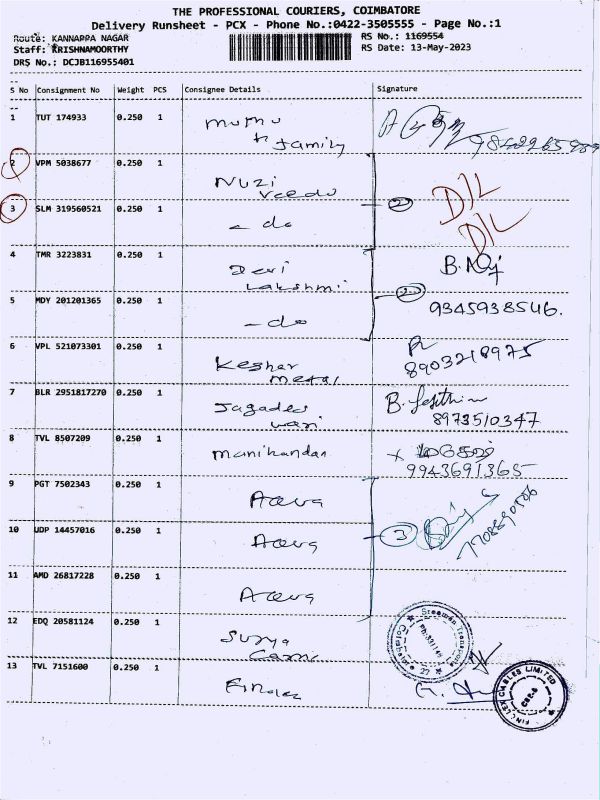 THE PROFESSIONAL COURIERS, COIMBATORE
Delivery Runsheet - PCX - Phone No.:0422-3505555 - Page No.:1
Route: KANNAPPA NAGAR RS No.: 1169554
Staff: KRISHNAMOORTHY RS Date: 13-May-2023
DRS No.: DCJB116955401
S No Consignment No Weight PCS Consignee Details Signature
1 TUT 174933 0.250 1 muthu
family
2 VPM 5038677 0.250 1 Nuzi D/L
veedu
3 SLM 319560521 0.250 1 - do 2 D/L
4 TMR 3223831 0.250 1 Devi B. Raj
Lakshmi 2
5 MDY 201201365 0.250 1 - do 9345938546.
6 VPL 521073301 0.250 1 Keshar 8903218975
metal
7 BLR 2951817270 0.250 1 Jagadees B.
wari 8973510347
8 TVL 8507209 0.250 1 manikandan 9943691365
9 PGT 7502343 0.250 1
10 UDP 14457016 0.250 1 3
11 AMD 26817228 0.250 1
12 EDQ 20581124 0.250 1 Surya
13 TVL 7151600 0.250 1 Finolex G.
FINOLEX CABLES LIMITED